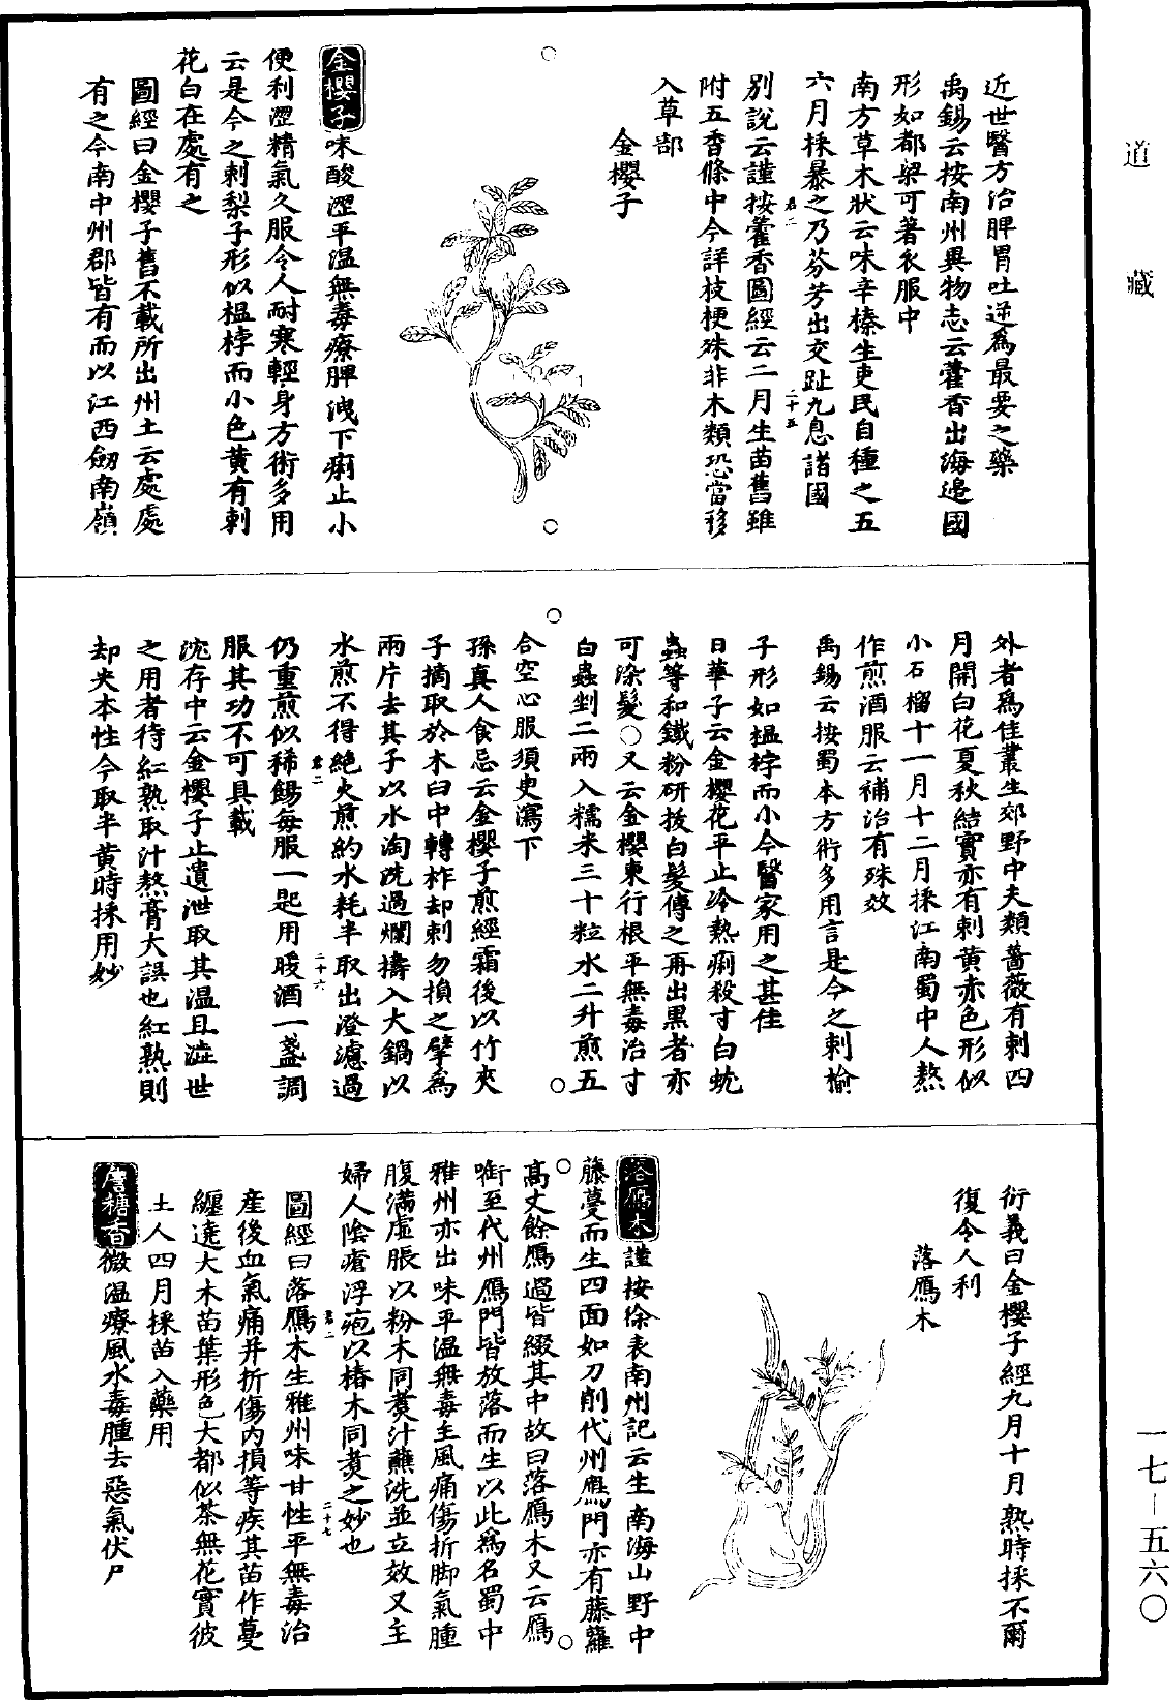 道藏
近世醫方治脾胃吐逆爲最要之藥
禹錫云按南州異物志云藿香出海邊國
形如都梁可著衣服中
南方草木狀云味辛榛生吏民自種之五
六月採暴之乃芬芳出交趾九息諸國
別說云謹按藿香圖經云二月生苗舊雖
附五香條中今詳枝梗殊非木類恐當移
入草部
金櫻子
金櫻子味酸澀平温無毒療脾洩下痢止小
便利澀精氣久服令人耐寒輕身方術多用
云是今之刺梨子形似榅桲而小色黄有刺
花白在處有之
圖經曰金櫻子舊不載所出州土云處處
有之今南中州郡皆有而以江西劒南嶺
外者爲佳叢生郊野中大類薔薇有刺四
月開白花夏秋結實亦有刺黄赤色形似
小石榴十一月十二月採江南蜀中人熬
作煎酒服云補治有殊效
禹錫云按蜀本方術多用言是今之刺榆
子形如榅桲而小今醫家用之甚佳
日華子云金櫻花平止冷熱痢殺寸白蚘
蟲等和鐵粉研拔白髮傅之再出黑者亦
可染髮○又云金櫻東行根平無毒治寸
白蟲剉二兩入糯米三十粒水二升煎五
合空心服須臾瀉下
孫真人食忌云金櫻子煎經霜後以竹夾
子摘取於木臼中轉柞却刺勿損之擘爲
兩片去其子以水淘洗過爛擣入大鍋以
水煎不得絕火煎約水耗半取出澄濾過
仍重煎似稀餳每服一匙用暖酒一盞調
服其功不可具載
沈存中云金櫻子止遺泄取其温且澁世
之用者待紅熟取汁熬膏大誤也紅熟則
却失本性今取半黄時採用妙
衍義曰金櫻子經九月十月熟時採不爾
復令人利
落鴈木
落鴈木謹按徐表南州記云生南海山野中
藤蔓而生四面如刀削代州鴈門亦有藤蘿
高丈餘鴈過皆綴其中故曰落鴈木又云鴈
銜至代州鴈門皆放落而生以此爲名蜀中
雅州亦出味平温無毒主風痛傷折脚氣腫
腹滿虛脹以粉木同煮汁蘸洗並立效又主
婦人陰瘡浮疱以椿木同煮之妙也
圖經曰落鴈木生雅州味甘性平無毒治
産後血氣痛并折傷內損等疾其苗作蔓
纏遶大木苗葉形色大都似茶無花實彼
土人四月採苗入藥用
唐糖香微温療風水毒腫去惡氣伏尸
一七－五六〇